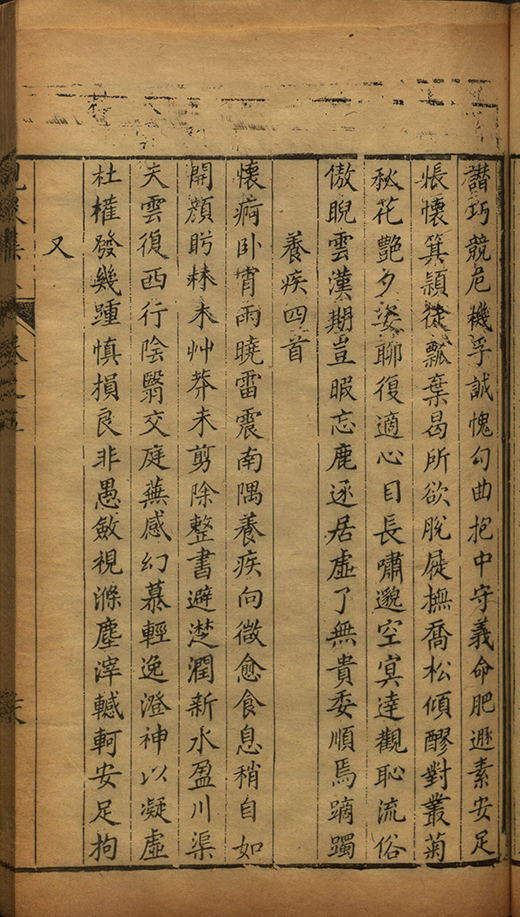 譛巧競危機孚誠愧勾曲抱中守義命肥遯素安足
悵懷箕潁徒瓢棄曷所欲脫屣撫喬松傾醪對叢菊
秋花艷夕姿聊復適心目長嘯邈空冥達觀恥流俗
傲睨雲漢期豈暇忘鹿逐居虛了無貴委順焉蹢躅
養疾四首
懷痾卧宵雨曉雷震南隅養疾向微愈食息稍自如
開顏眄林末艸莽未剪除整書避礎潤新水盈川渠
夫雲復西行陰翳交庭蕪感幻慕輕逸澄神以凝虛
杜權發幾踵慎損良非愚斂視滌塵滓轗軻安足拘
又